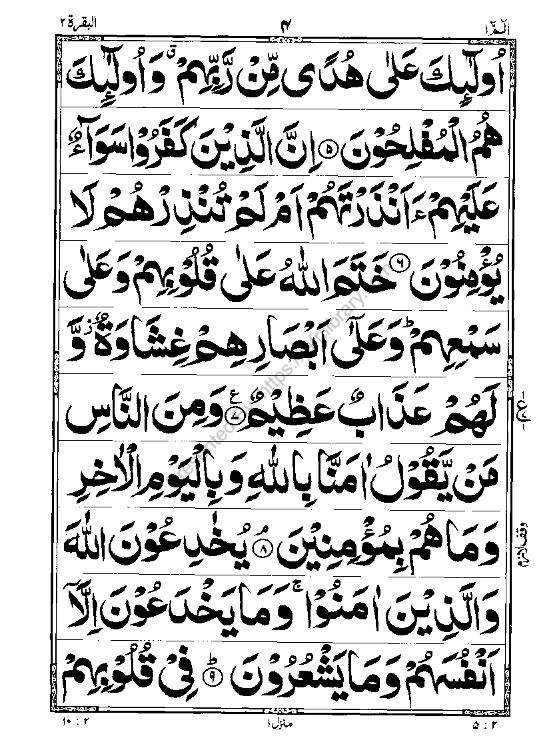 الٓمّٓ ١ ۴ البقرة ٢
اُولٰٓئِكَ عَلٰى هُدًى مِّنْ رَّبِّهِمْ ۗ وَاُولٰٓئِكَ
هُمُ الْمُفْلِحُوْنَ ۵ اِنَّ الَّذِيْنَ كَفَرُوْا سَوَآءٌ
عَلَيْهِمْ ءَاَنْذَرْتَهُمْ اَمْ لَمْ تُنْذِرْهُمْ لَا
يُؤْمِنُوْنَ ۶ خَتَمَ اللّٰهُ عَلٰى قُلُوْبِهِمْ وَعَلٰى
سَمْعِهِمْ ؕ وَعَلٰٓى اَبْصَارِهِمْ غِشَاوَةٌ ز وَّ
لَهُمْ عَذَابٌ عَظِيْمٌ ۷ ع وَمِنَ النَّاسِ
مَنْ يَّقُوْلُ اٰمَنَّا بِاللّٰهِ وَبِالْيَوْمِ الْاٰخِرِ
وَمَا هُمْ بِمُؤْمِنِيْنَ ۘ ۸ يُخٰدِعُوْنَ اللّٰهَ
وقف لازم
وَالَّذِيْنَ اٰمَنُوْا ۚ وَمَا يَخْدَعُوْنَ اِلَّاۤ
اَنْفُسَهُمْ وَمَا يَشْعُرُوْنَ ؕ ۹ فِيْ قُلُوْبِهِمْ
۵ : ۲ منزل ۱ ۱۰ : ۲